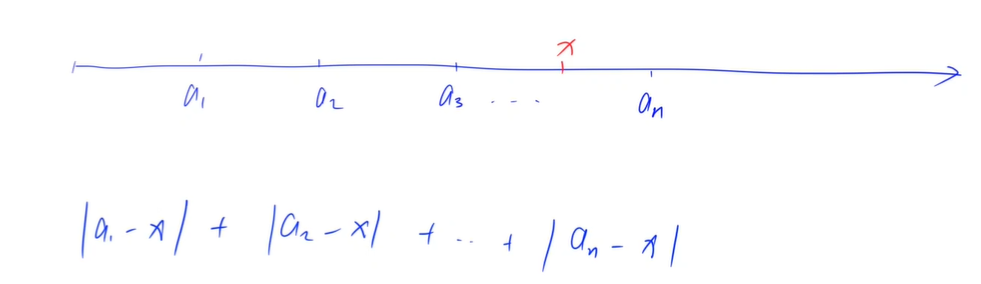 x
a₁ a₂ a₃ .... aₙ
|a₁ - x| + |a₂ - x| + .. + |aₙ - x|